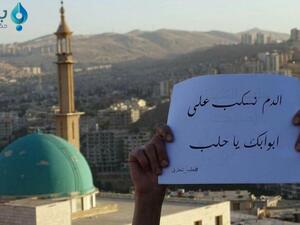 الدم نسكب على
ابوابك يا حلب